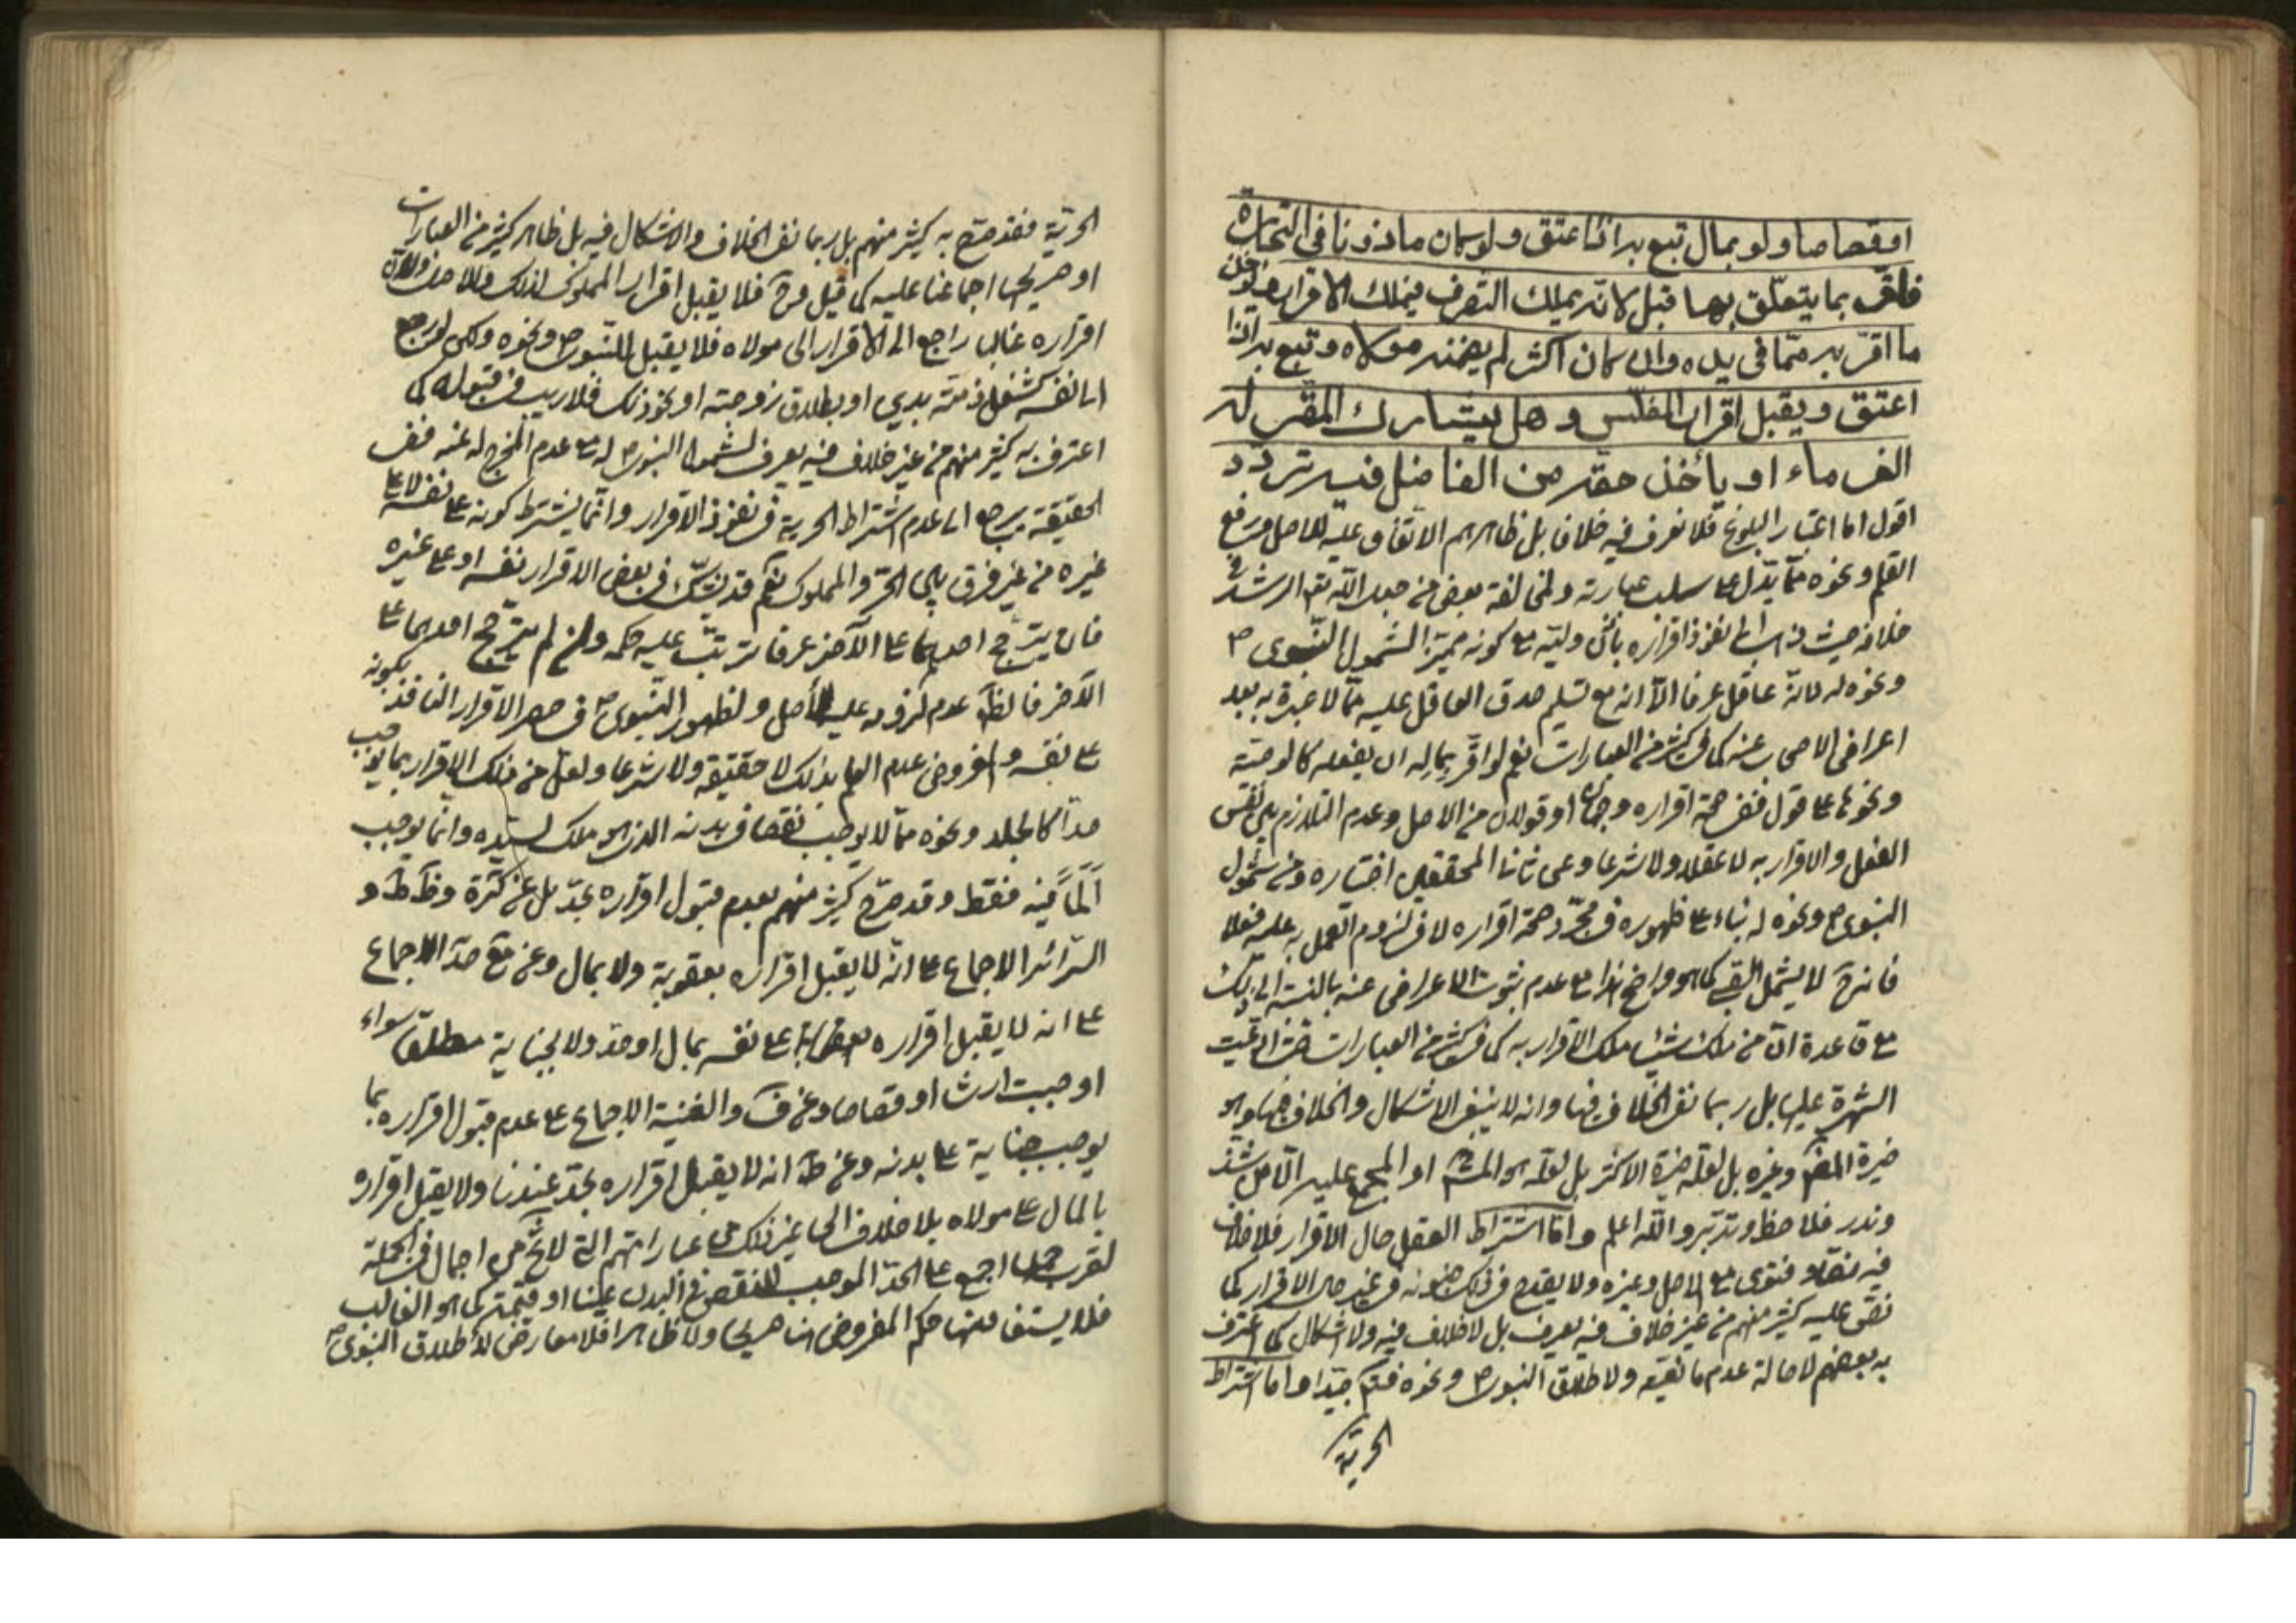 او قصاصا ولو بمال تبع به اذا اعتق ولو كان ماذونا في التجارة
فاقر بما يتعلق بها قبل لانه يملك التصرف فيملك الاقرار ويؤخذ
ما اقر به مما في يده وان كان اكثر لم يضمنه مولاه وتبع به اذا
اعتق ويقبل اقرار المفلس وهل يشارك المقر له
الغرماء او يأخذ حقه من الفاضل فيه تردد
اقول اما اعتبار البلوغ فلا نعرف فيه خلافا بل ظاهرهم الاتفاق عليه للاصل ورفع
القلم ونحوه مما يدل على سلب عبارته ولمخالفة بعض من
خلافه حيث نفوذ اقراره باذن وليه مع كونه مميزا لشمول النبوي ص
ونحوه له لانه عاقل عرفا الا انه مع تسليم صدق العاقل عليه مما لا عبرة به بعد
اعراض الاصحاب عنه كما في كثير من العبارات نعم لو اقر بما له ان يفعله كالوصية
ونحوها على قول ففي صحة اقراره وجهان او قولان من الاصل وعدم التلازم بين نفس
الفعل والاقرار به لا عقلا ولا شرعا وعن ثاني المحققين اختياره ومن شمول
النبوي ص ونحوه له بناء على ظهوره في مجرد صحة اقراره لا في لزوم العمل به عليه فعلا
لا يشمل كما هو واضح مع عدم ثبوت الاعراض عنه بالنسبة الى ذلك
مع قاعدة ان من ملك شيئا ملك الاقرار به كما في كثير من العبارات
الشهرة عليها بل ربما نفي الخلاف فيها وانه لا ينبغي الاشكال والخلاف فيها وهو
خيرة المصنف وغيره بل لعله خيرة الاكثر بل لعله هو المش او المجمع عليه
وندر فلاحظ وتدبر والله اعلم واما اشتراط العقل حال الاقرار فلا خلاف
فيه نصا وفتوى مع الاصل وغيره ولا يقدح في ذلك جنونه في غير حال الاقرار كما
نص عليه كثير منهم من غير خلاف فيه يعرف بل لا خلاف فيه ولا اشكال كما اعترف
به بعضهم لاصالة عدم مانعيته ولاطلاق النبوي ص ونحوه فتدبر جيدا واما اشتراط
الحرية
الحرية فقد صرح به كثير منهم بل ربما نفي الخلاف والاشكال فيه بل ظاهر كثير من العبارات
او صريحها اجماعنا عليه كما قيل فلا يقبل اقرار المملوك لذلك وللاصل ولان
اقراره غالبا راجع الى الاقرار على مولاه فلا يقبل للنبوي ص ونحوه ولكن لو رجع
الى نفسه كشغل ذمته بدين او بطلاق زوجته او نحو ذلك فلا ريب في قبوله كما
اعترف به كثير منهم من غير خلاف فيه يعرف لشمول النبوي ص له مع عدم المخرج له عنه ففي
الحقيقة مرجعه الى عدم اشتراط الحرية في نفوذ الاقرار وانما يشترط كونه على نفسه لا على
غيره من غير فرق بين الحر والمملوك نعم قد يشك في بعض الاقرار نفسه او على غيره
فان يترجح احدهما على الآخر عرفا ترتب عليه حكمه وان لم يترجح احدهما على
الآخر فالظ عدم لزومه عليه للاصل ولظهور النبوي ص في حصر الاقرار النافذ بكونه
على نفسه والمفروض عدم العلم بذلك لا حقيقة ولا شرعا ولعل من ذلك الاقرار بما يوجب
حدا كالجلد ونحوه مما لا يوجب نقصا في بدنه الذي هو ملك لسيده وانما يوجب
ألما فيه فقط وقد صرح كثير منهم بعدم قبول اقراره بحد بل عن كرة و
السرائر الاجماع على انه لا يقبل اقراره بعقوبة ولا بمال وعن الاجماع
على انه لا يقبل اقراره على نفسه بمال او حد ولا بجناية مطلقا سواء
اوجبت ارشا او قصاصا وعن ف والغنية الاجماع على عدم قبول اقراره بما
يوجب جناية على بدنه وعن ط انه لا يقبل اقراره بحد عندنا ولا يقبل اقراره
بالمال على مولاه بلا خلاف الى غير ذلك من عباراتهم التي لا تخ من اجمال في الجملة
لقرب اجمع على الحد الموجب للنقص في البدن عينا او قيمة كما هو الغالب
فلا يستفاد منها حكم المفروض هنا صريحا ولا ظاهرا فلا معارض لاطلاق النبوي ص